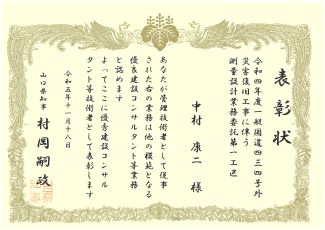 表彰状
令和四年度一般国道四三四号外
災害復旧工事に伴う
測量設計業務委託第一工区
中村 康二 様
あなたが管理技術者として従事
された右の業務は他の模範となる
優良建設コンサルタント等業務
と認めます
よってここに優秀建設コンサル
タント等技術者として表彰します
令和五年十一月十八日
山口県知事 村岡嗣政